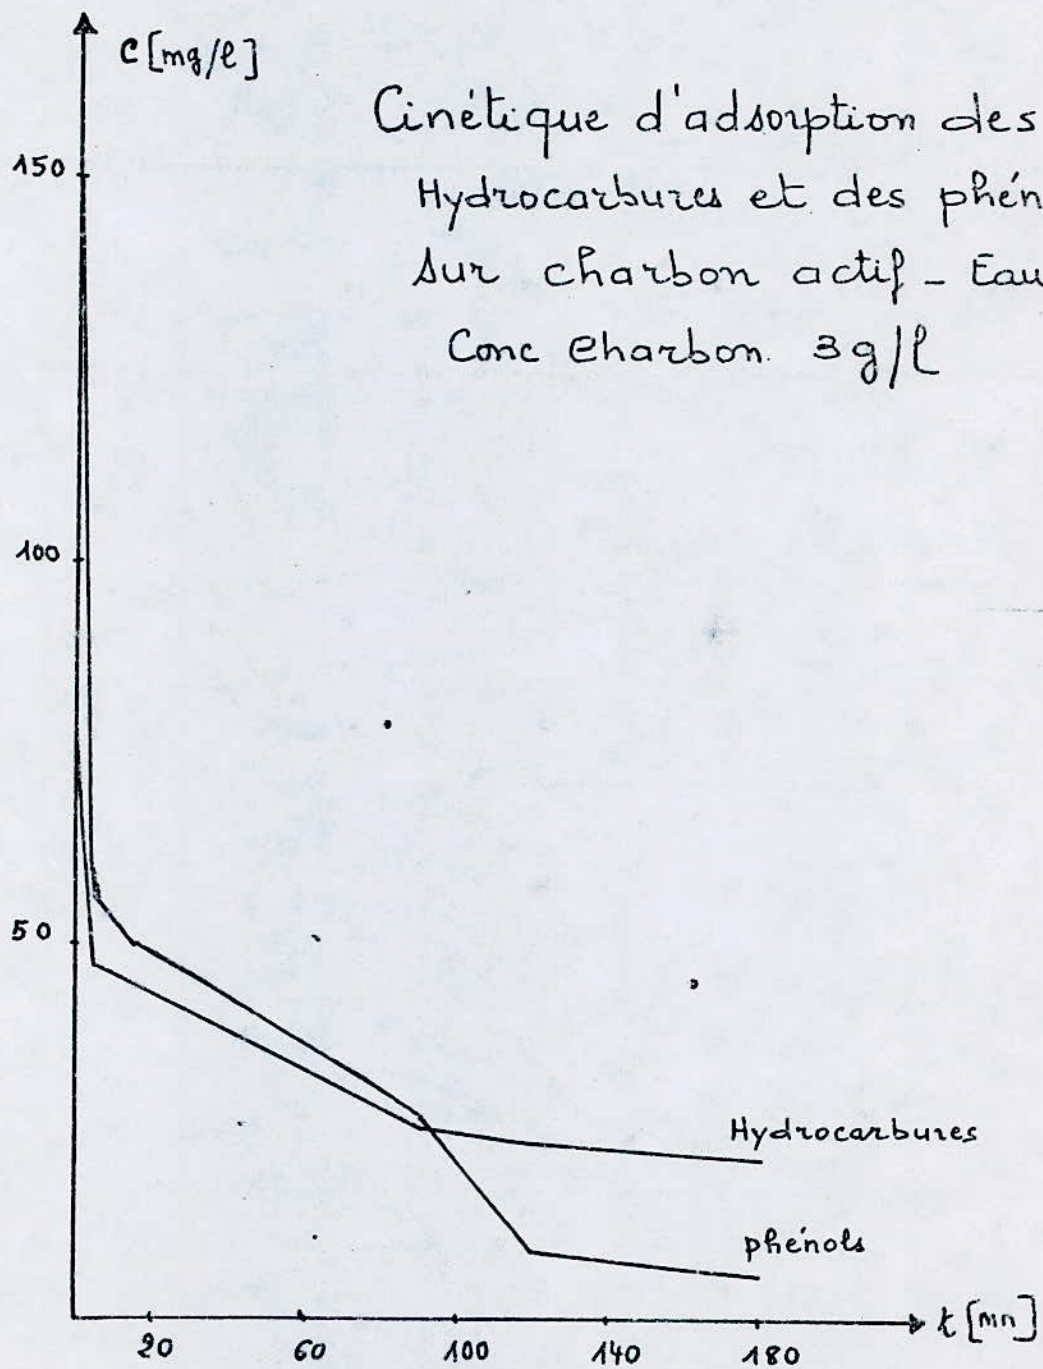 C [mg/l]
Cinétique d'adsorption des
Hydrocarbures et des phén
sur charbon actif - Eau
Conc Charbon. 3g/l
150
100
50
Hydrocarbures
phénols
20 60 100 140 180
t [mn]